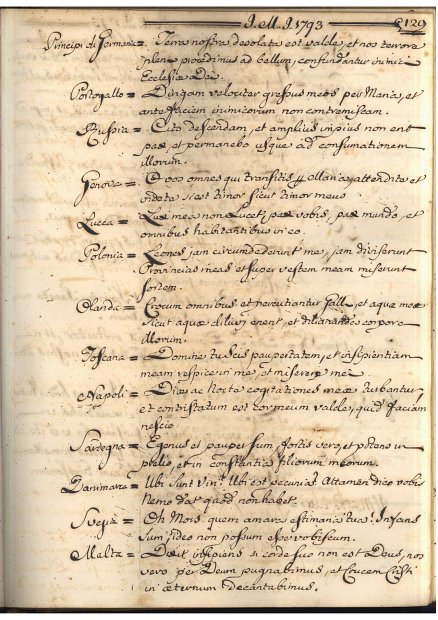 J. M. J. 1793 129
Principi di Germania = Terra nostra desolata est valde, et nos terrore
pleni procedimus ad bellum, confundantur inimici
Ecclesiæ Dei.
Portogallo = Dirigam velociter gressus meos per Maria, et
ante faciem inimicorum non contremiscam.
Russia = Cito descendam, et amplius impius non erit
pax et permanebo usque ad consumationem
illorum.
Genova = O vos omnes qui transitis attendite et
videte si est timor sicut timor meus
Lucca = Lux mea non Lucet, pax vobis, pax mundo, et
omnibus habitantibus in eo.
Polonia = Leones jam circumdederunt me, jam diviserunt
Provincias meas et super vestem meam miserunt
sortem.
Olanda = omnibus et percutiantur et aquæ meæ
sicut aquæ diluvij erunt, et corpora
illorum.
Toscana = Domine tu scis paupertatem, et insipientiam
meam respice in me, et miserere mei.
Napoli = Dies ac Nocte cogitationes meæ turbantur,
et contristatum est cor meum valde, quid faciam
nescio.
Sardegna = Egenus et pauper sum, fortis vero, et potens in
prælio, et in constantia filiorum meorum.
Danimarca = Ubi sunt Vin.t Ubi est pecunia? Attamen dico vobis
Nemo dat quod non habet.
Svezia = Oh Mors quam amara est Infans
sum ideo non possum esse vobiscum.
Malta = Dixit insipiens in corde suo non est Deus, nos
vero per Deum pugnabimus, et Crucem Cristi
in æternum decantabimus.